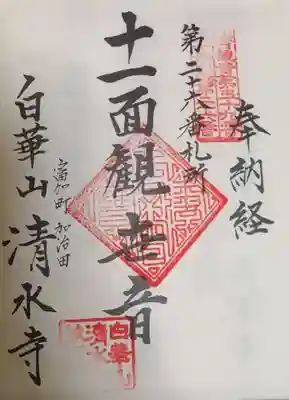 奉納経
第二十六番札所
十一面観世音
富加町加治田
白華山清水寺